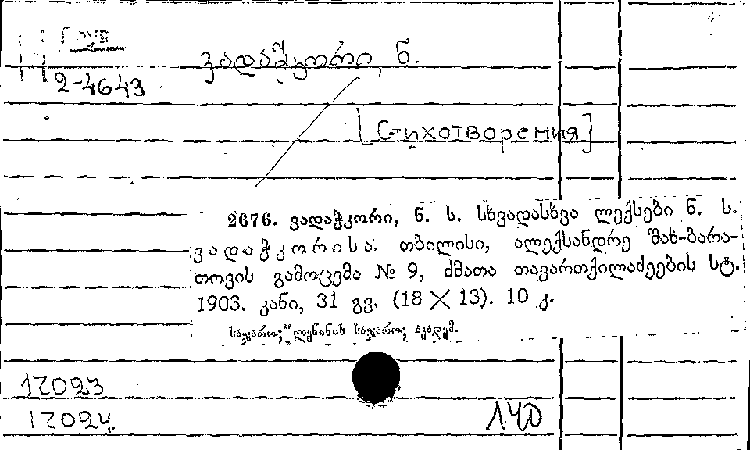 Груз
2-4643
ვადაჭკორი, ნ.
[Стихотворения]
2676. ვადაჭკორი, ნ. ს. სხვადასხვა ლექსები ნ. ს.
ვადაჭკორისა. თბილისი, ალექსანდრე შახ-ბარა-
თოვის გამოცემა № 9, ძმათა თავართქილაძეების სტ.
1903. კანი, 31 გვ. (18 X 13). 10 კ.
17023
17024